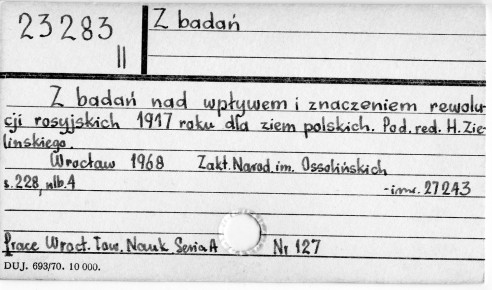 23283
II
Z badań
Z badań nad wpływem i znaczeniem rewolu-
cji rosyjskich 1917 roku dla ziem polskich. Pod. red. H. Zie-
lińskiego.
Wrocław 1968 Zakł. Narod. im. Ossolińskich
s. 228, nlb. 4
- inw. 27243
Prace Wrocł. Tow. Nauk. Seria A Nr 127
DUJ. 693/70. 10 000.